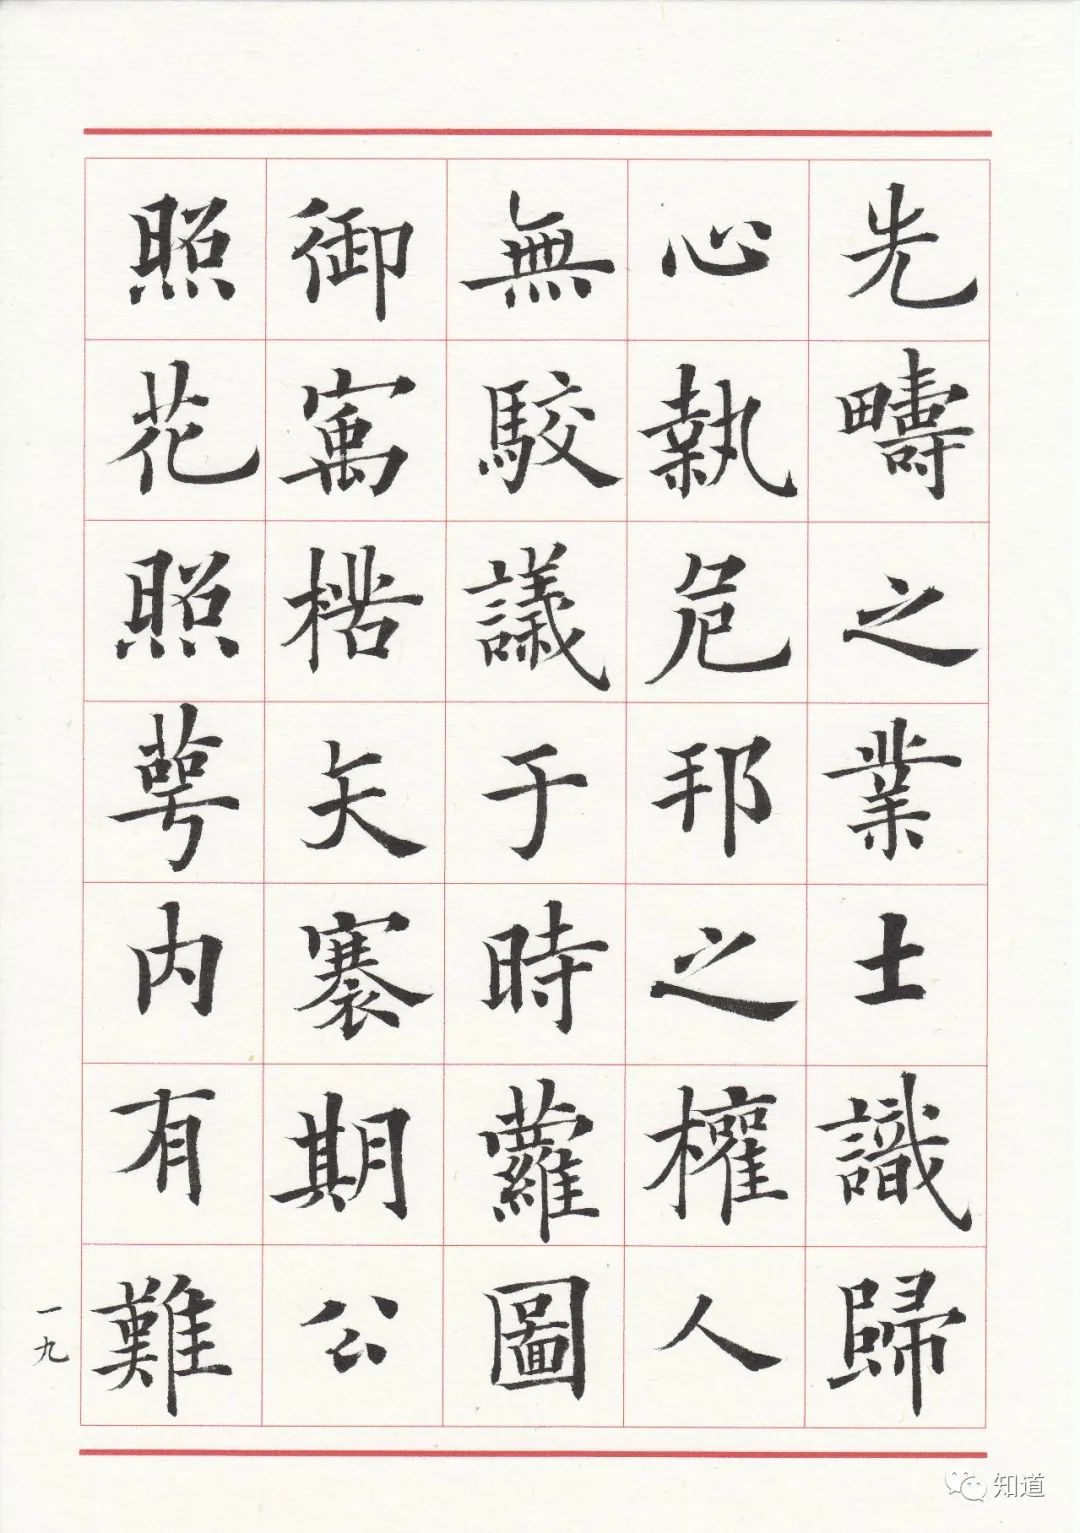 先疇之業士識歸
心執危邦之權人
無駮議于時蘿圖
御寓楛矢褰期公
照花照萼內有難
一九
知道